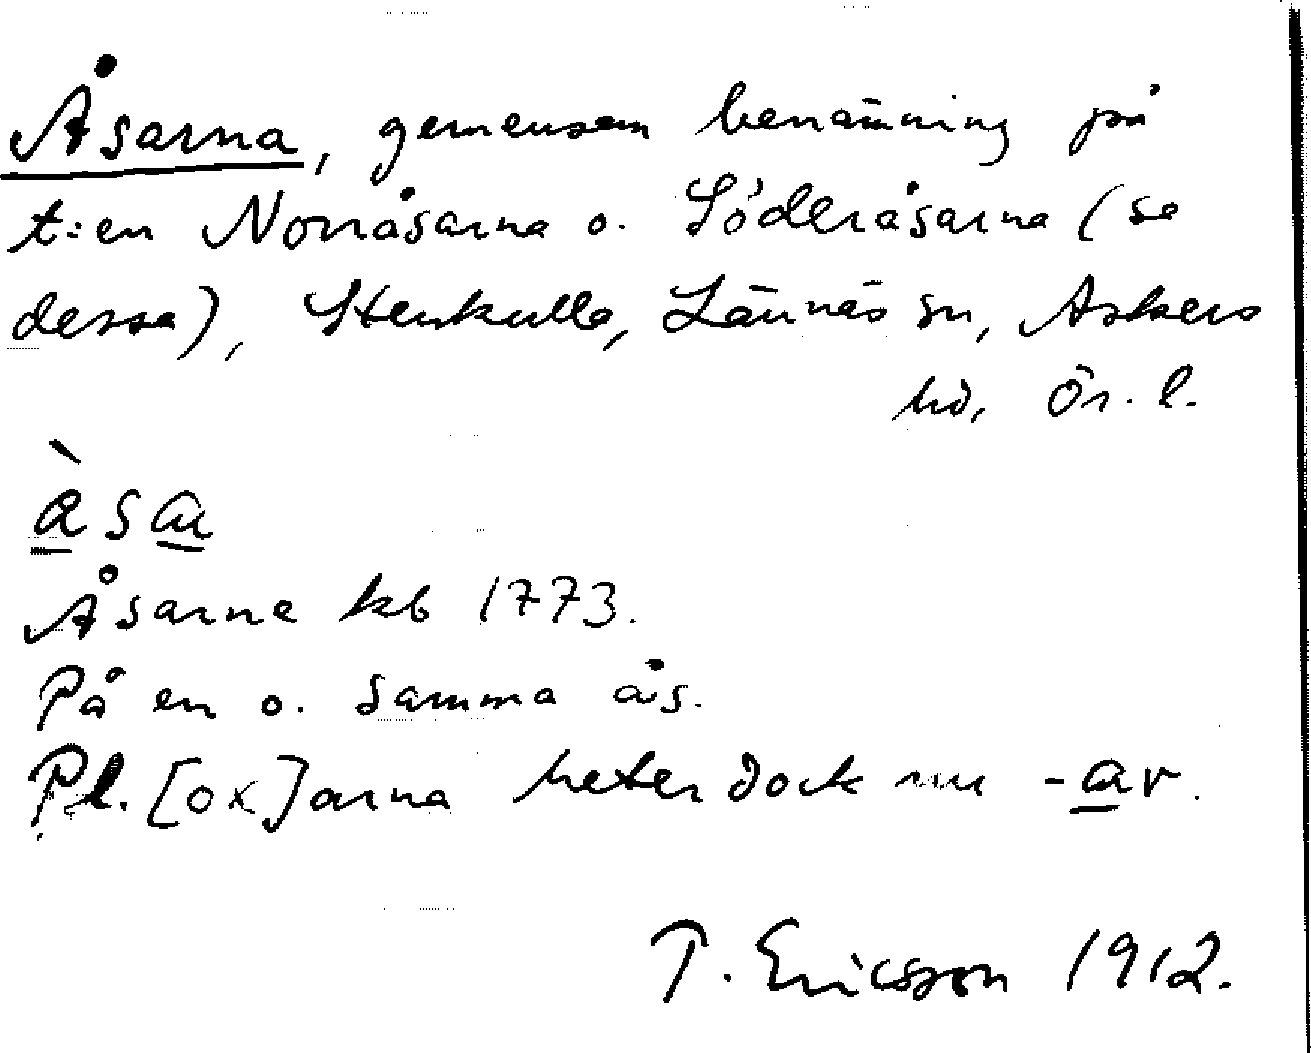 Åsarna, gemensam benämning på
t:en Norråsarna o. Söderåsarna (se
dessa), Stenkulla, Lännäs sn, Askers
hd, Ör. l.
Åsarna kb 1773.
På en o. samma ås.
Pl. [ox]arna heter dock nu -ar.
T. Ericsson 1912.